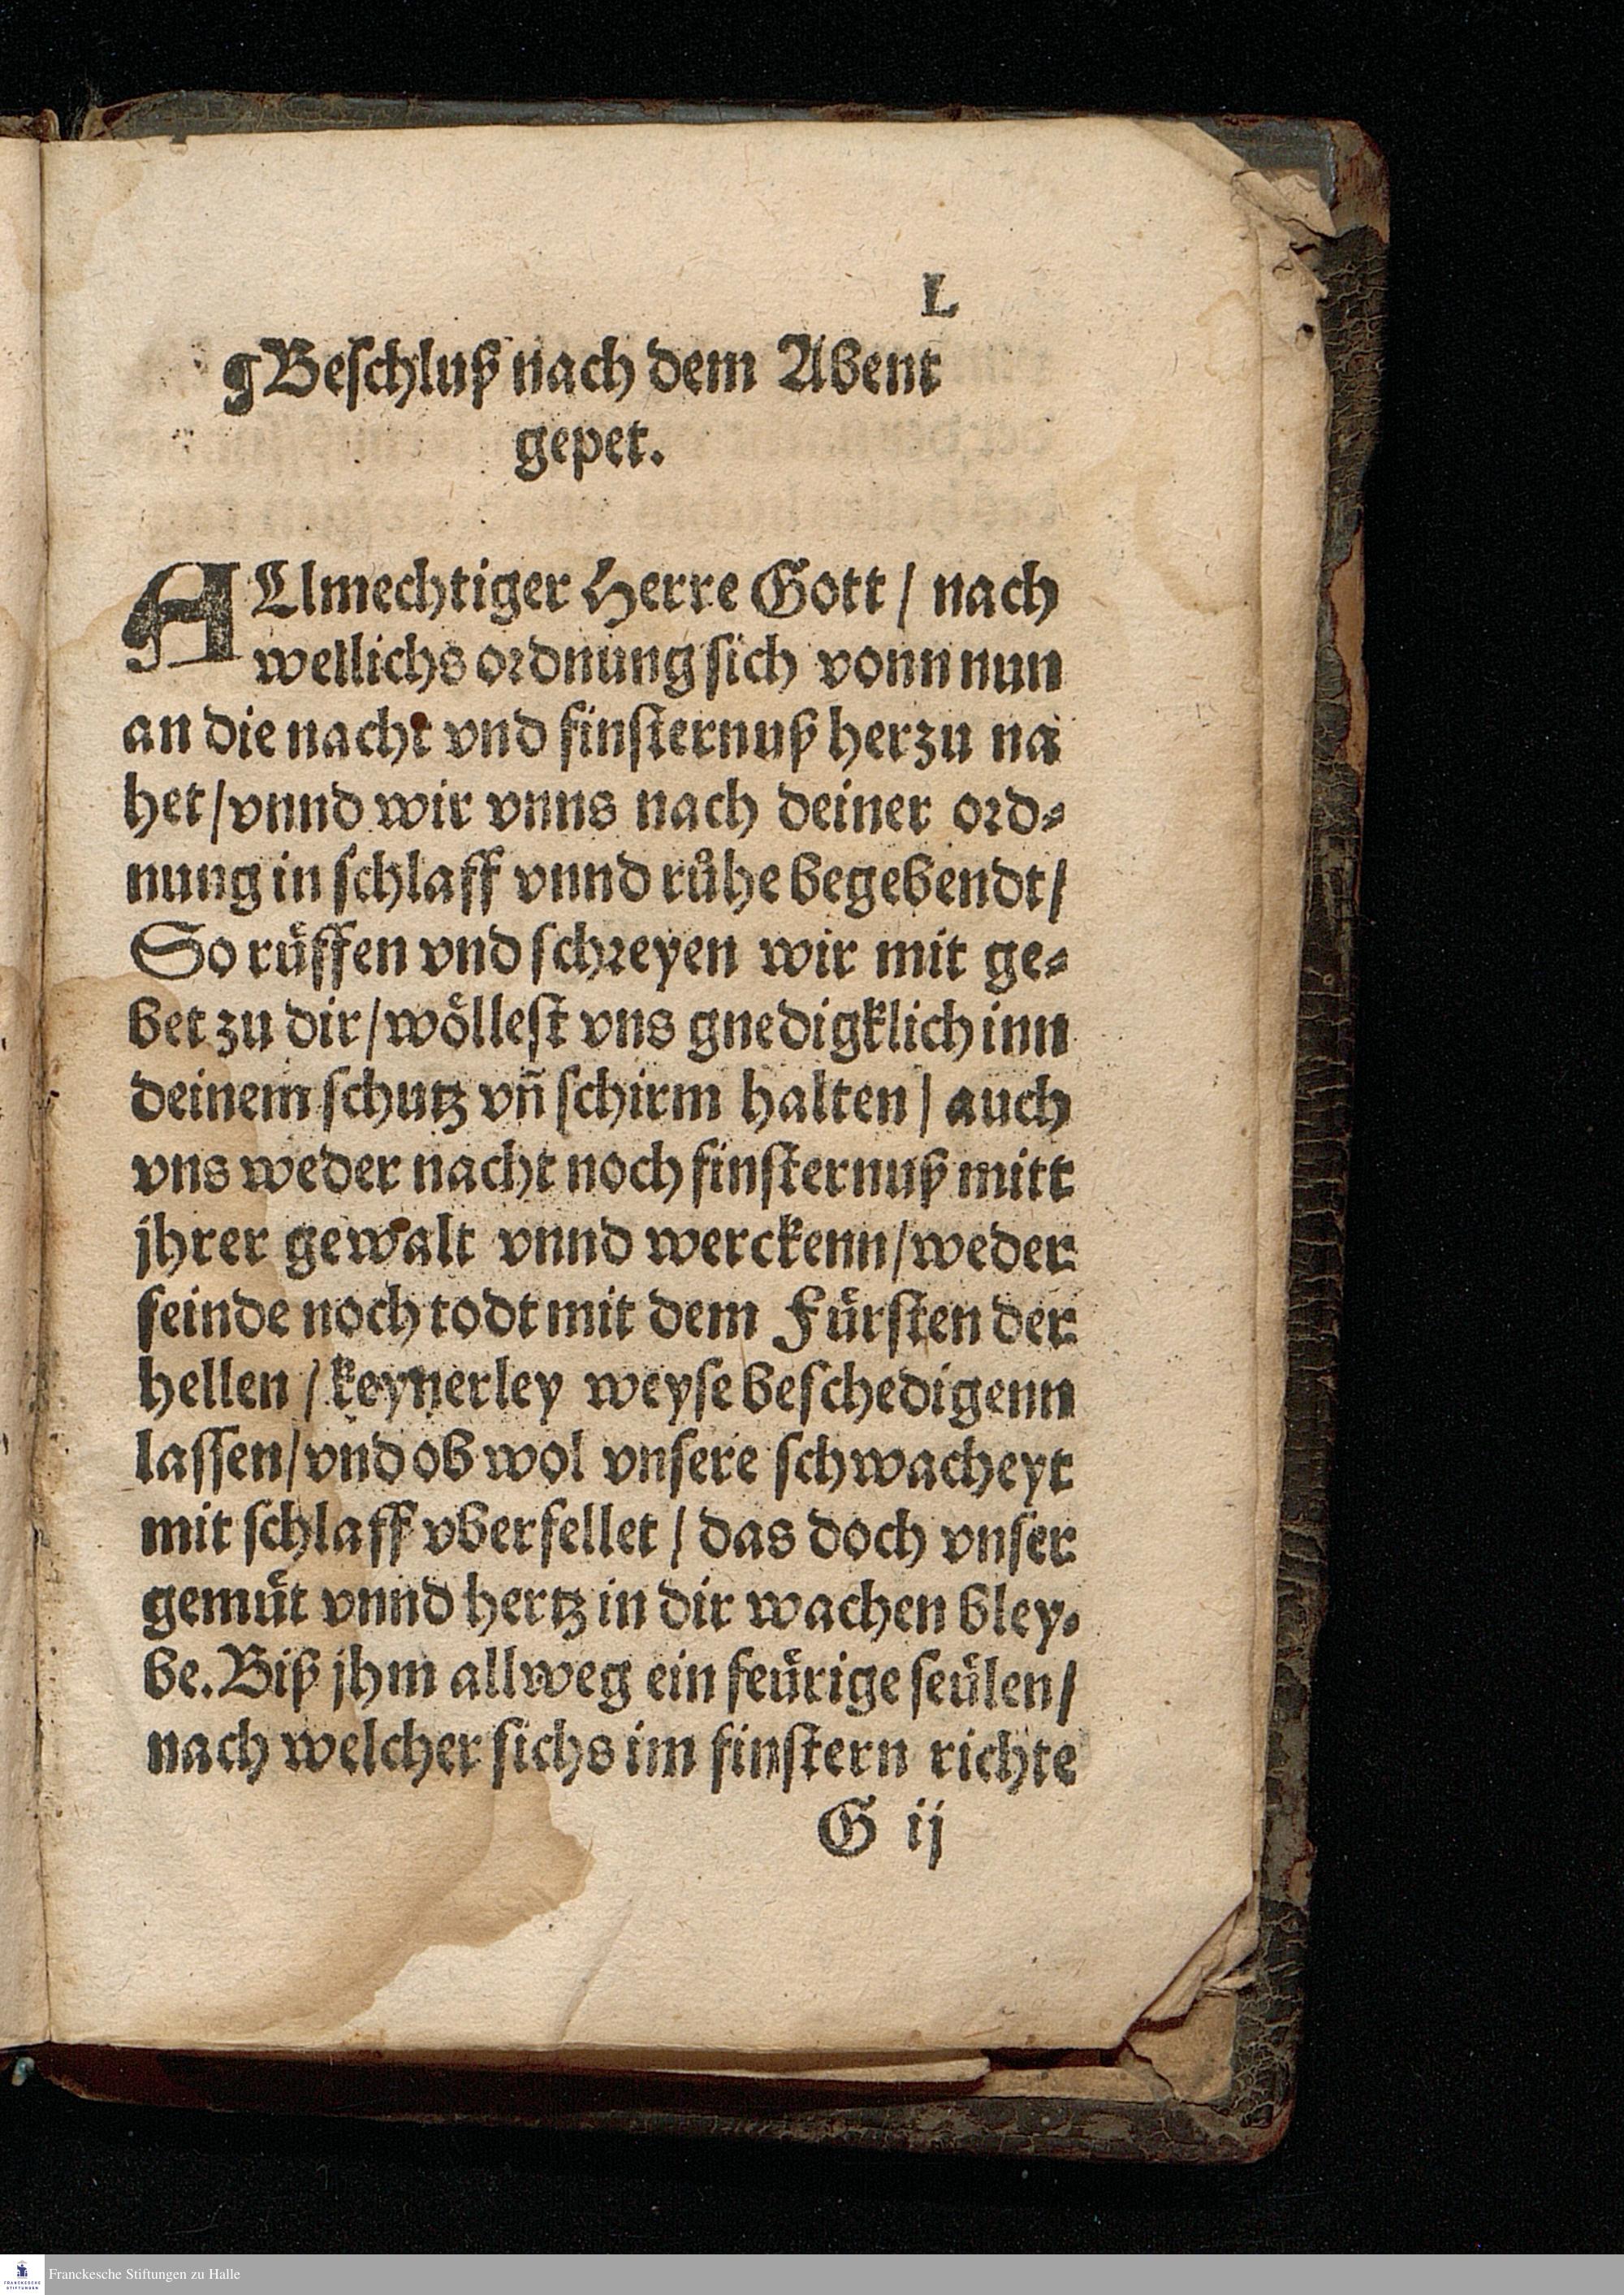 L
¶Beschluß nach dem Abent
gepet.
ALlmechtiger Herre Gott / nach
wellichs ordnung sich vonn nun
an die nacht vnd finsternuß herzu na
het / vnnd wir vnns nach deiner ord⸗
nung in schlaff vnnd růhe begebendt /
So rüffen vnd schreyen wir mit ge⸗
bet zu dir / wöllest vns gnedigklich inn
deinem schutz vñ schirm halten / auch
vns weder nacht noch finsternuß mitt
jhrer gewalt vnnd werckenn / weder
feinde noch todt mit dem Fürsten der
hellen / keynerley weyse beschedigenn
lassen / vnd ob wol vnsere schwacheyt
mit schlaff vberfellet / das doch vnser
gemüt vnnd hertz in dir wachen bley⸗
be. Biß jhm allweg ein feürige seülen /
nach welcher sichs im finstern richte
G ij
FRANCKESCHE
STIFTUNGEN
Franckesche Stiftungen zu Halle